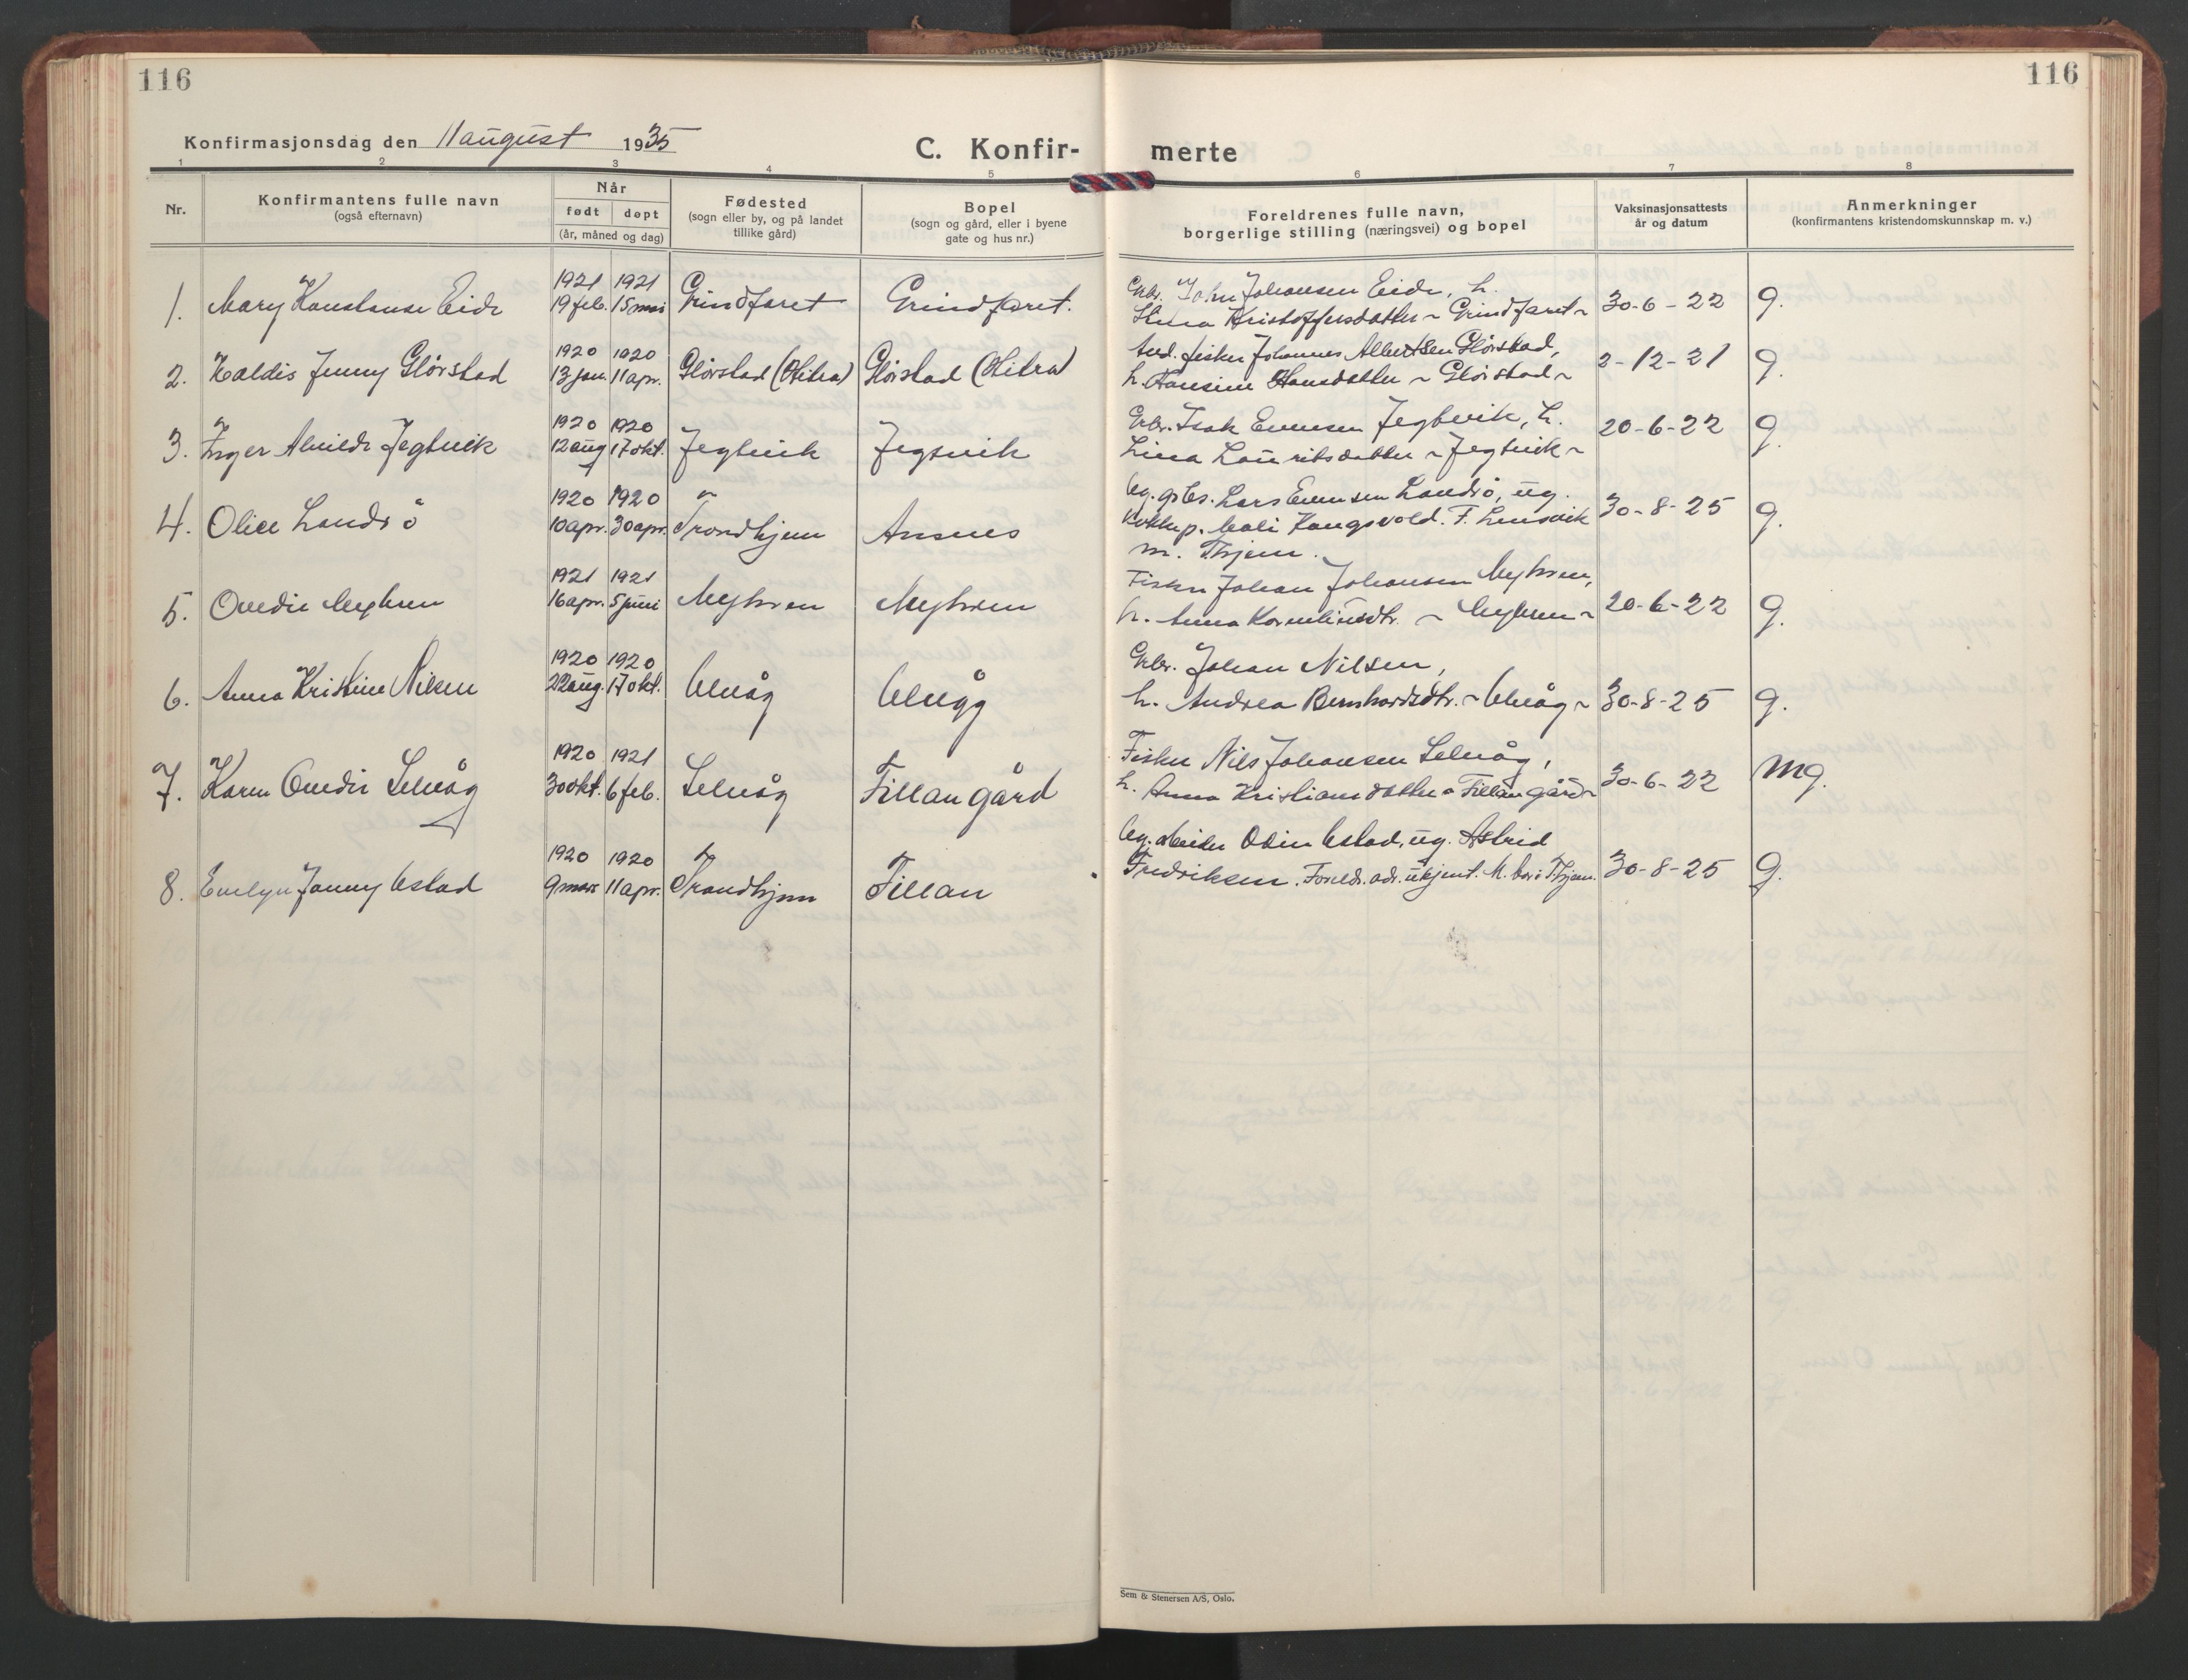 116
116
Konfirmasjonsdag den 11 august 1935
C. Konfir-
merte
1 2 3 4 5 6 7 8
Nr.
Konfirmantens fulle navn
(også efternavn)
Når
født døpt
(år, måned og dag)
Fødested
(sogn eller by, og på landet
tillike gård)
Bopel
(sogn og gård, eller i byene
gate og hus nr.)
Foreldrenes fulle navn,
borgerlige stilling (næringsvei) og bopel
Vaksinasjonsattests
år og datum
Anmerkninger
(konfirmantens kristendomskunnskap m. v.)
1921 1921
1. Mary Konstanse Eide 19 feb. 15 mai Grindfaret Grindfaret.
Gbr. John Johansen Eide, h.
Kristoffersdatter ~ Grindfaret ~ 30-6-22 g.
1920 1920
2. Haldis Jenny Glørstad 13 jan. 11 apr. Glørstad (Hitra) Glørstad (Hitra)
fisker Johannes Albertsen Glørstad,
h. Hansine Hansdatter ~ Glørstad ~ 2-12-21 g.
1920 1920
3. Inger Alvilde Jegtvik 12 aug 17 okt. Jegtvik Jegtvik
Gbr. Isak Evensen Jegtvik, h.
Lina Lauritsdatter ~ Jegtvik ~ 20-6-22 g.
1920 1920
4. Olice Landrö 10 apr. 30 apr. Trondhjem Ansnes
Ug. gbs. Lars Evensen Landrö, ug.
Mali Kongsvold. F. Lensvik 30-8-25 g.
m. Thjem.
1921 1921
5. Ovedie Myhren 16 apr. 5 juni Myhren Myhren
Fisker Johan Johansen Myhren,
h. Anna Korneliusdtr. ~ Myhren ~ 20-6-22 g.
1920 1920
6. Anna Kristine Nilsen 22 aug. 17 okt. Ulvåg Ulvåg
Gbr. Johan Nilsen,
h. Andrea Bernhardsdtr. ~ Ulvåg ~ 30-8-25 g.
1920 1921
7. Karen Ovedie Selvåg 30 okt. 6 feb. Selvåg Fillan gård
Fisker Nils Johansen Selvåg,
h. Anna Kristiansdatter ~ Fillan gård ~ 30-6-22 mg.
1920 1920
8. Evelyn Jenny Ustad 9 mars 11 apr. Trondhjem Fillan
Ug. arbeider Odin Ustad, ug. Astrid
Fredriksen. Foreldr. adr. ukjent. M. bor i Thjem. 30-8-25 g.
Sem & Stenersen A/S, Oslo.